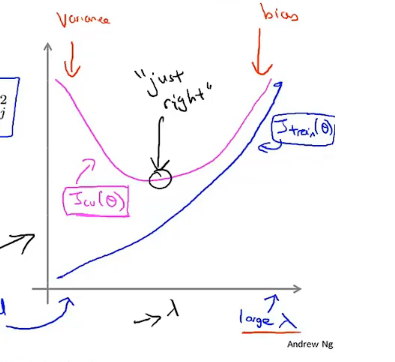 Variance
bias
"just
right"
2
j
J_train(θ)
J_cv(θ)
→ λ
large λ
Andrew Ng